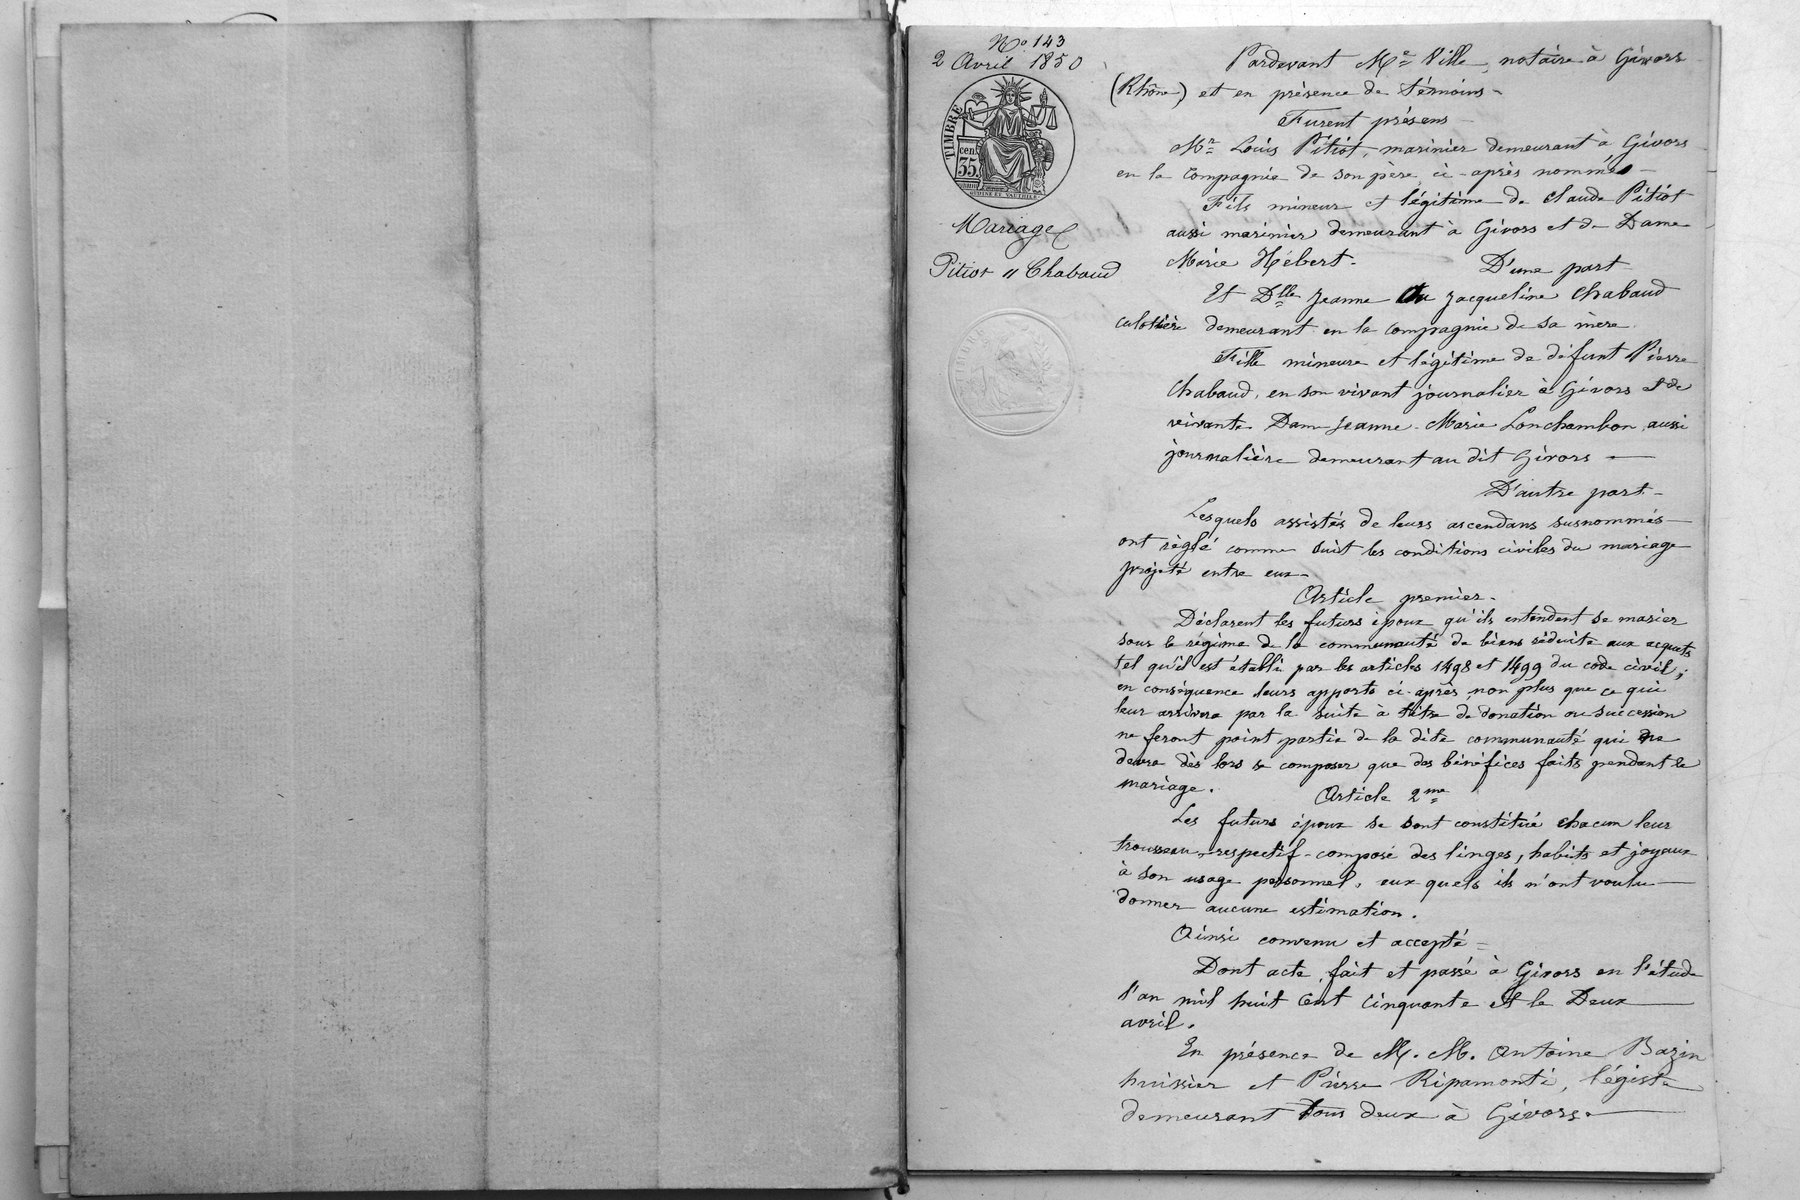 No 143
2 Avril 1850
TIMBRE
cen.
35.
Mariage
Pitiot " Chabaud
Pardevant Me Ville, notaire à Givors
(Rhône) et en présence de témoins -
Furent présens
Mr Louis Pitiot, marinier demeurant à Givors
en la compagnie de son père, ci-après nommé -
Fils mineur et légitime de Claude Pitiot
aussi marinier demeurant à Givors et de Dame
Marie Hébert - D'une part
Et Dlle Jeanne ou Jacqueline Chabaud
culottière demeurant en la compagnie de sa mère
Fille mineure et légitime de défunt Pierre
Chabaud, en son vivant journalier à Givors et de
vivante Dame Jeanne-Marie Lonchambon, aussi
journalière demeurant au dit Givors -
D'autre part -
Lesquels assistés de leurs ascendans susnommés -
ont réglé comme suit les conditions civiles du mariage
projeté entre eux -
Article premier -
Déclarent les futurs époux qu'ils entendent se marier
sous le régime de la communauté de biens réduite aux acquets
tel qu'il est établi par les articles 1498 et 1499 du code civil ;
en conséquence leurs apports ci-après non plus que ce qui
leur arrivera par la suite à titre de donation ou succession
ne feront point partie de la dite communauté qui ne
devra dès lors se composer que des bénéfices faits pendant le
mariage. Article 2me
Les futurs époux se sont constitué chacun leur
trousseau respectif - composé des linges, habits et joyaux
à son usage personnel, aux quels ils n'ont voulu -
donner aucune estimation.
Ainsi convenu et accepté =
Dont acte, fait et passé à Givors en l'étude
l'an mil huit cent cinquante et le Deux -
avril.
En présence de M. M. Antoine Bazin
huissier et Pierre Ripamonti, légiste
demeurant tous deux à Givors. -